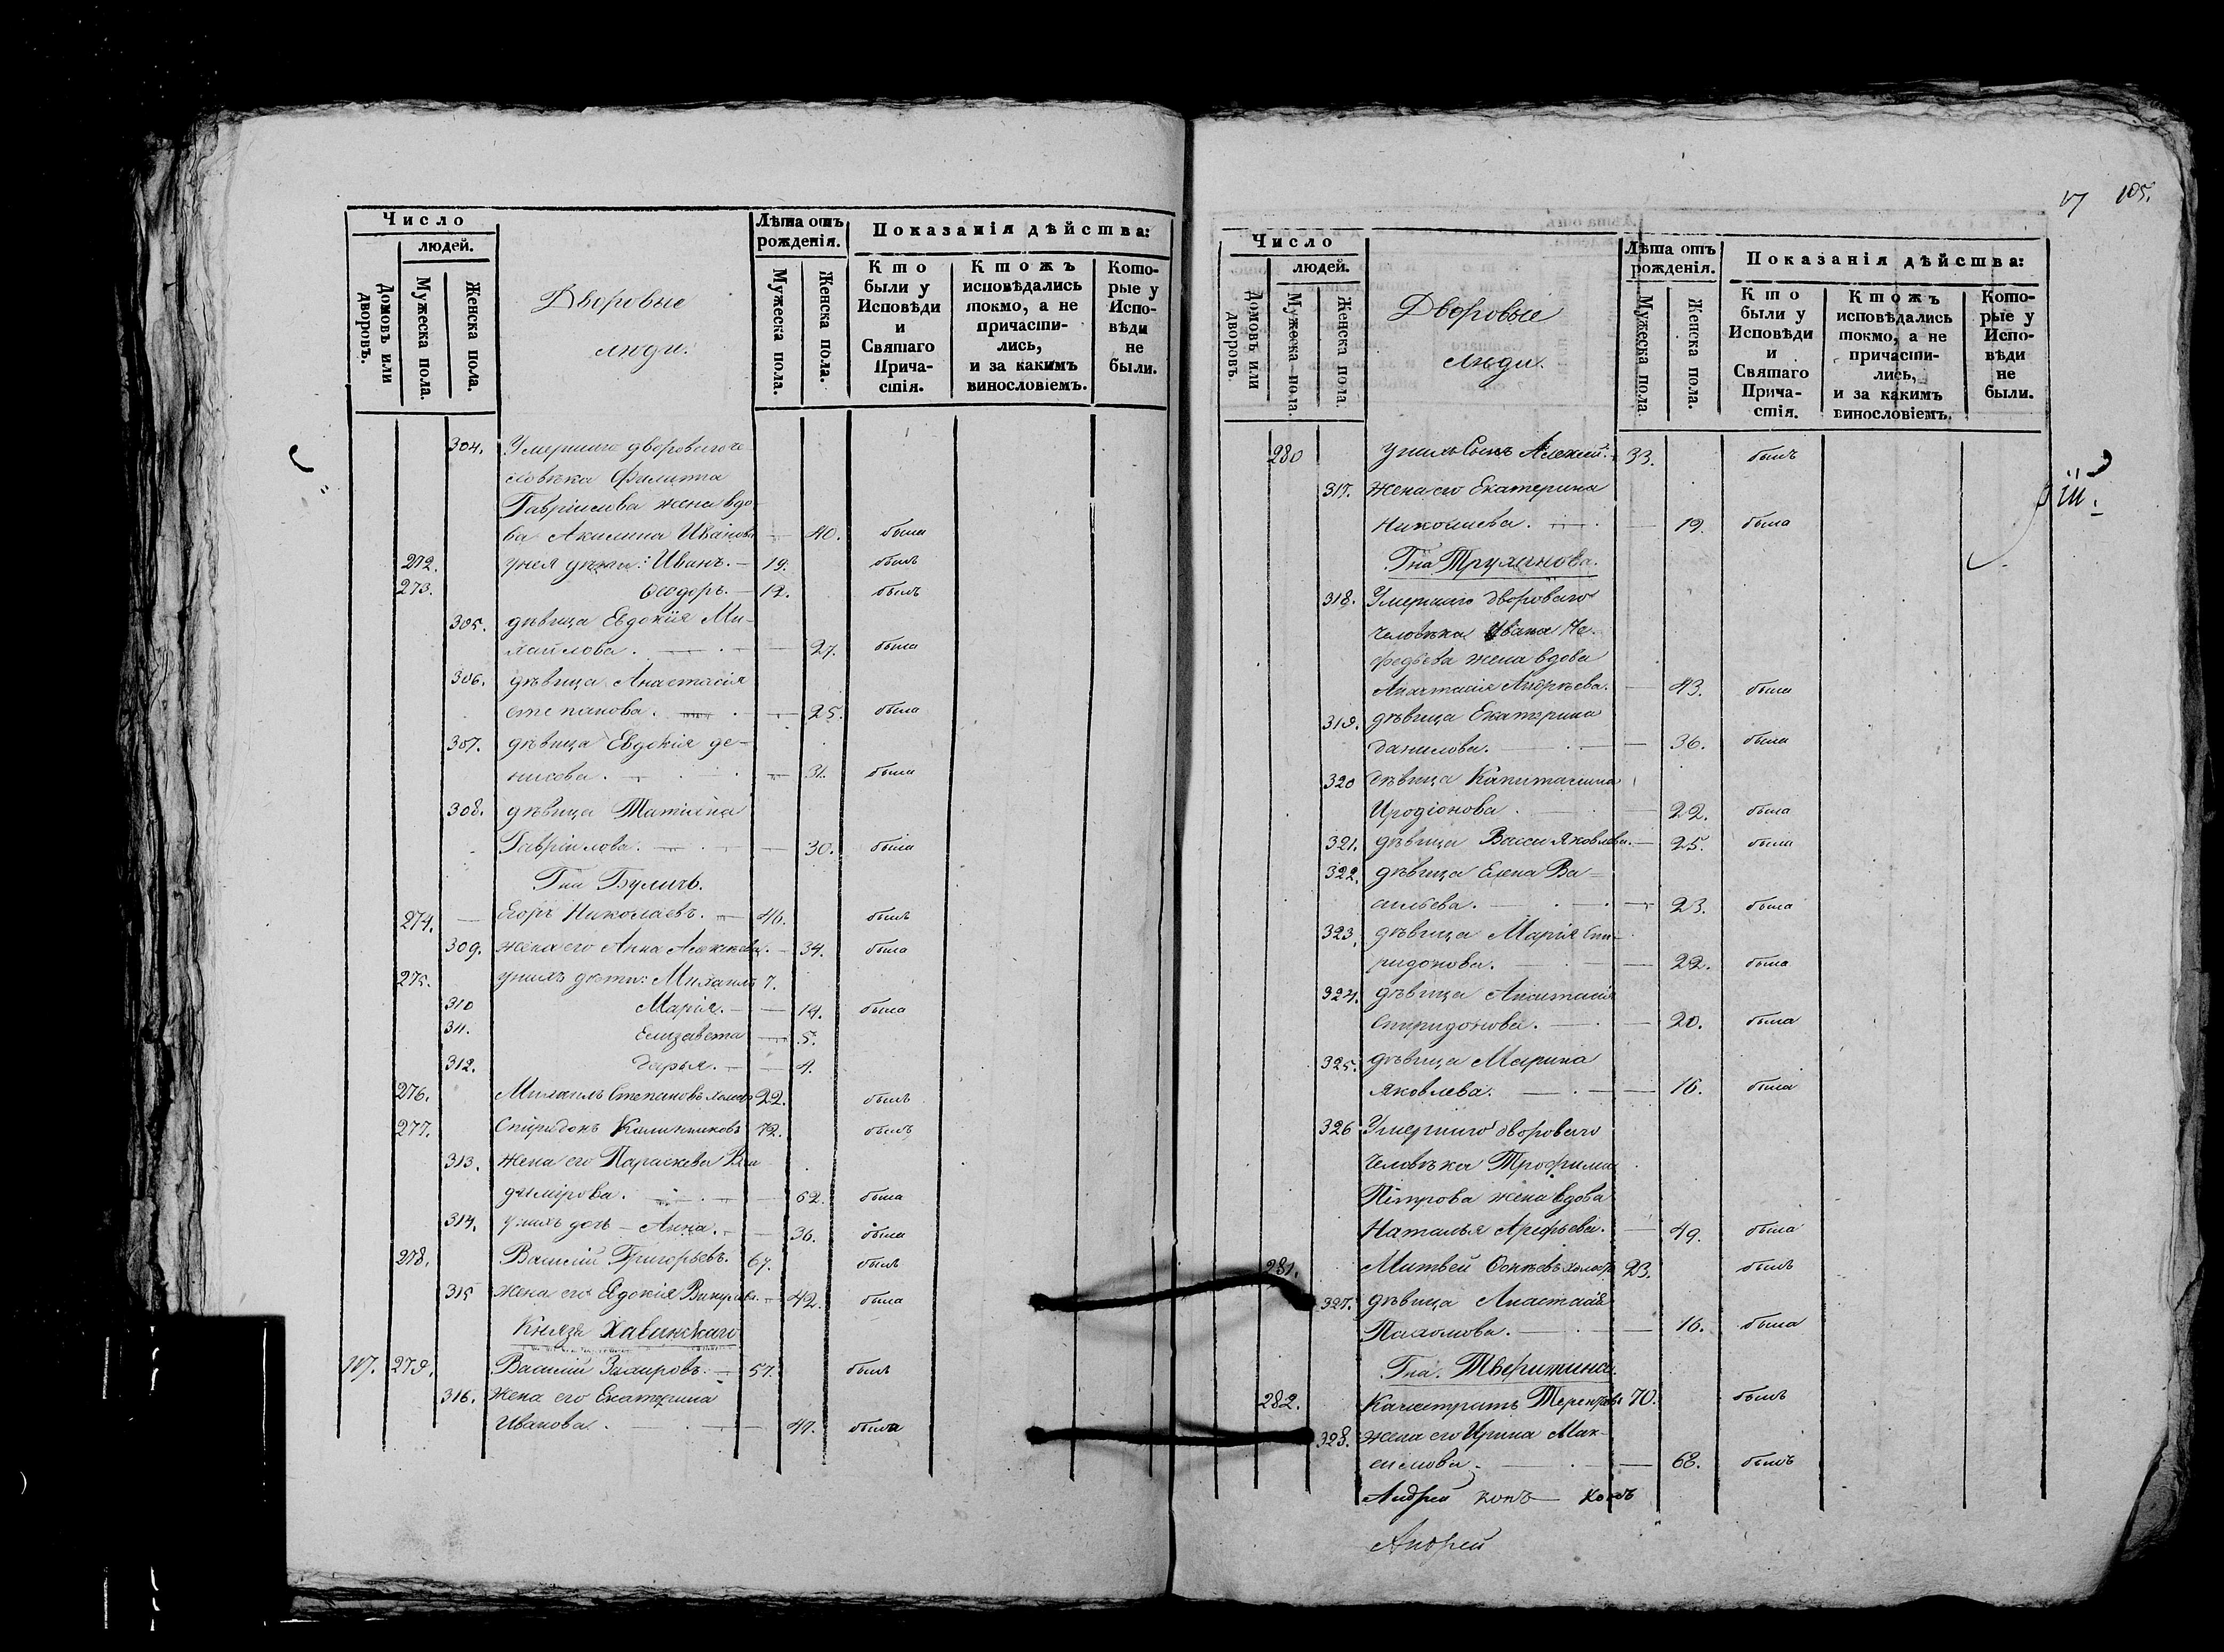 Число
людей.
Домовъ или дворовъ.
Мужеска пола.
Женска пола.
Дворовые
люди.
Лѣта отъ рожденія.
Мужеска пола.
Женска пола.
Показанія дѣйства:
Кто были у Исповѣди и Святаго Причастія.
Ктожъ исповѣдались токмо, а не причастились, и за какимъ винословіемъ.
Которые у Исповѣди не были.
304. Умершаго двороваго че-
ловѣка Филиппа
Гавріилова жена вдо-
ва Акилина Иванова 40. была
272. у нея дѣти: Иванъ. 19. былъ
273. Ѳеодоръ. 12. былъ
305. дѣвица Евдокія Ми-
хайлова. 27. была
306. дѣвица Анастасія
Степанова. 25. была
307. дѣвица Евдокія де-
нисова. 31. была
308. дѣвица Татіана
Гавріилова. 30. была
Гна Буличь.
274. Егоръ Николаевъ. 46. былъ
309. жена его Анна Алексѣева. 34. была
275. у нихъ дѣти: Михаилъ 7.
310 Марія. 14. была
311. Елизавета 5.
312. Дарья. 4.
276. Михаилъ Степановъ холостъ 22. былъ
277. Спиридонъ Калинниковъ 72. былъ
313. жена его Параскева Вла
димірова. 62. была
314. у нихъ дочь Анна. 36. была
278. Василій Григорьевъ. 67. былъ
315 жена его Евдокія Викулова. 42. была
Князя Хованскаго
107. 279. Василій Захаровъ. 57. былъ
316. жена его Екатерина
Иванова. 47. была
105.
Число
людей.
Домовъ или дворовъ.
Мужеска пола.
Женска пола.
Дворовые
люди.
Лѣта отъ рожденія.
Мужеска пола.
Женска пола.
Показанія дѣйства:
Кто были у Исповѣди и Святаго Причастія.
Ктожъ исповѣдались токмо, а не причастились, и за какимъ винословіемъ.
Которые у Исповѣди не были.
280 у нихъ сынъ Алексей. 33. былъ
317. жена его Екатерина
Николаева. 19. была
Гна Трухинова.
318. Умершаго двороваго
человѣка Ивана Не-
федьева жена вдова
Анастасія Андрѣева. 43. была
319. дѣвица Екатерина
данилова. 36. была
320 дѣвица Капиталина
Иродіонова 22. была
321. дѣвица Васса Яковлева. 25. была
322. дѣвица Елена Ва-
сильева. 23. была
323. дѣвица Марія Спи-
ридонова. 22. была
324. дѣвица Анастасія
Спиридонова. 20. была
325. дѣвица Марина
Яковлева. 16. была
326 Умершаго двороваго
человѣка Трофима
Петрова жена вдова
Наталья Арефьева. 49. была
281. Матвей холостъ 23. былъ
327. дѣвица Анастасія
Пахомова. 16. была
Гна. Тверитина.
282. Калистратъ Терентьевъ 70. былъ
328. жена его Ирина Мак-
симова. 68. былъ
Андрей
Андрей